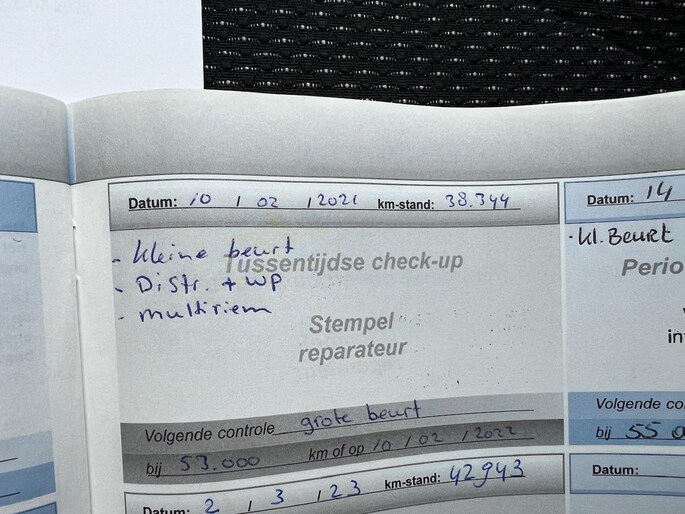 Datum: 10 / 02 / 2021 km-stand: 38.344
- kleine beurt
Tussentijdse check-up
- Distr. + WP
- multiriem
Stempel
reparateur
Volgende controle grote beurt
bij 53.000 km of op 10 / 02 / 2022
Datum: 2 / 3 / 23 km-stand: 42943
Datum: 14
· Kl. Beurt
Perio
in
Volgende co
bij 55
Datum: